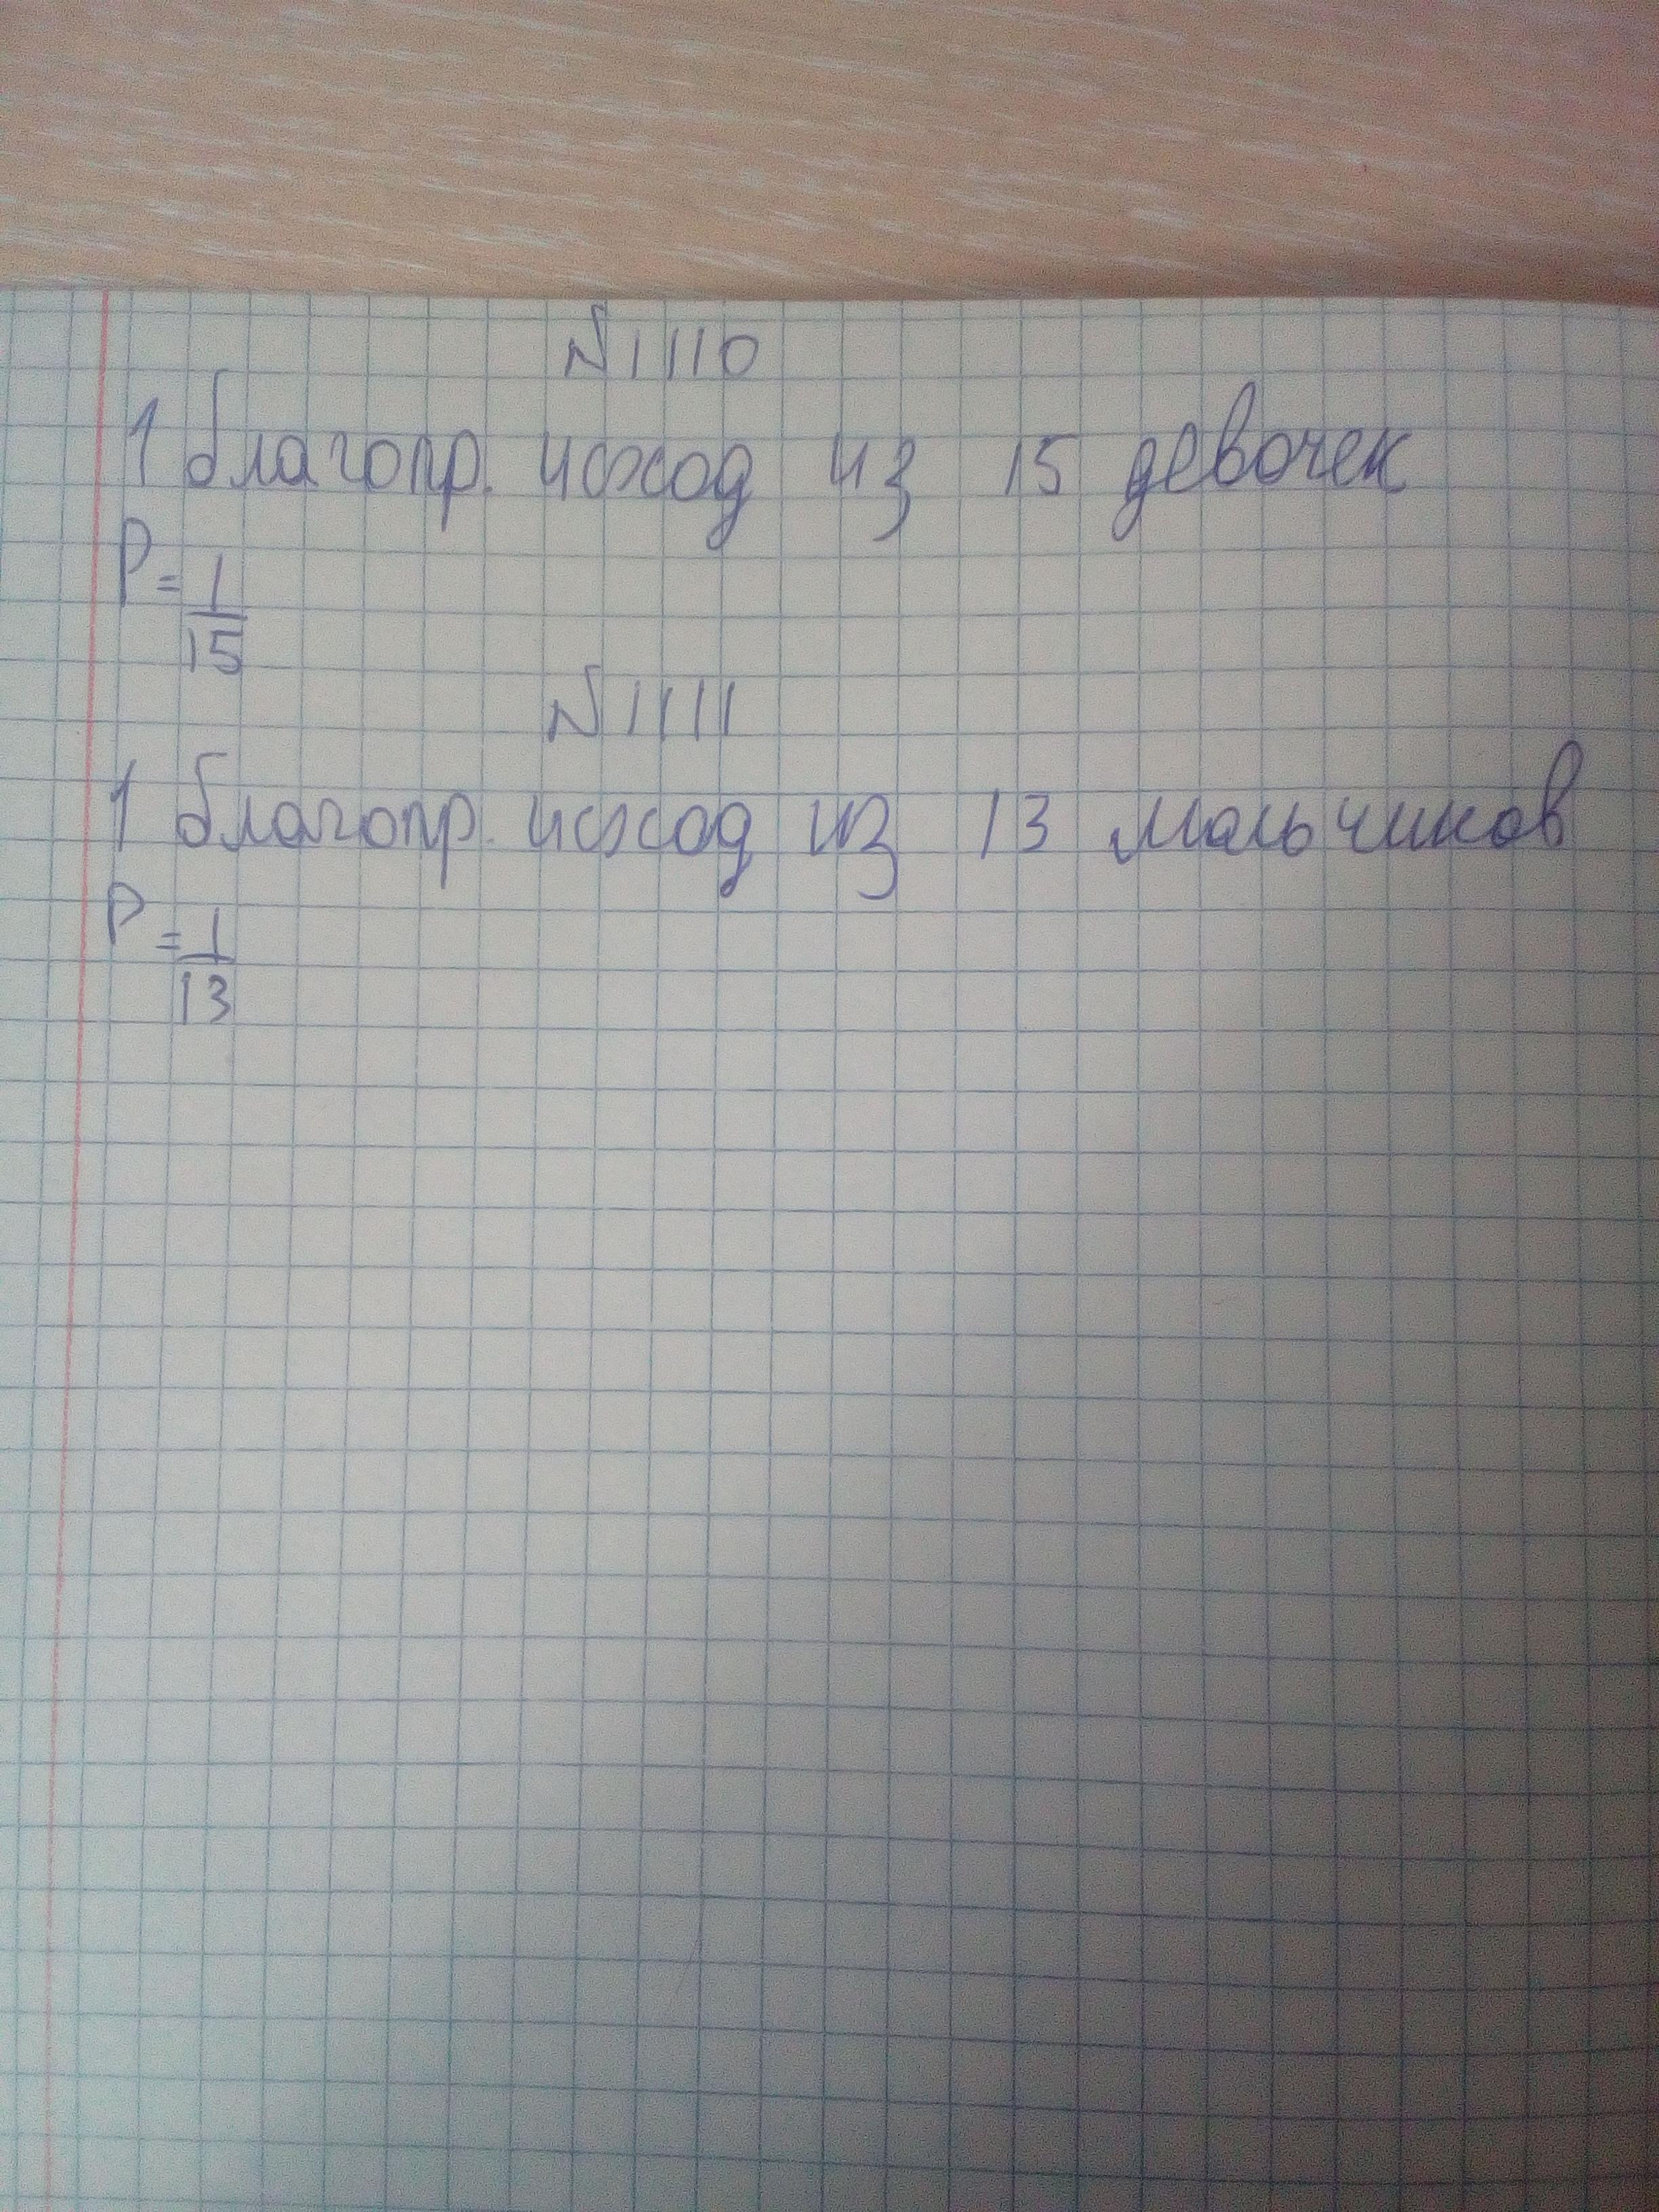 №1110
1 благопр. исход из 15 девочек
P = 1/15
№1111
1 благопр. исход из 13 мальчиков
P = 1/13